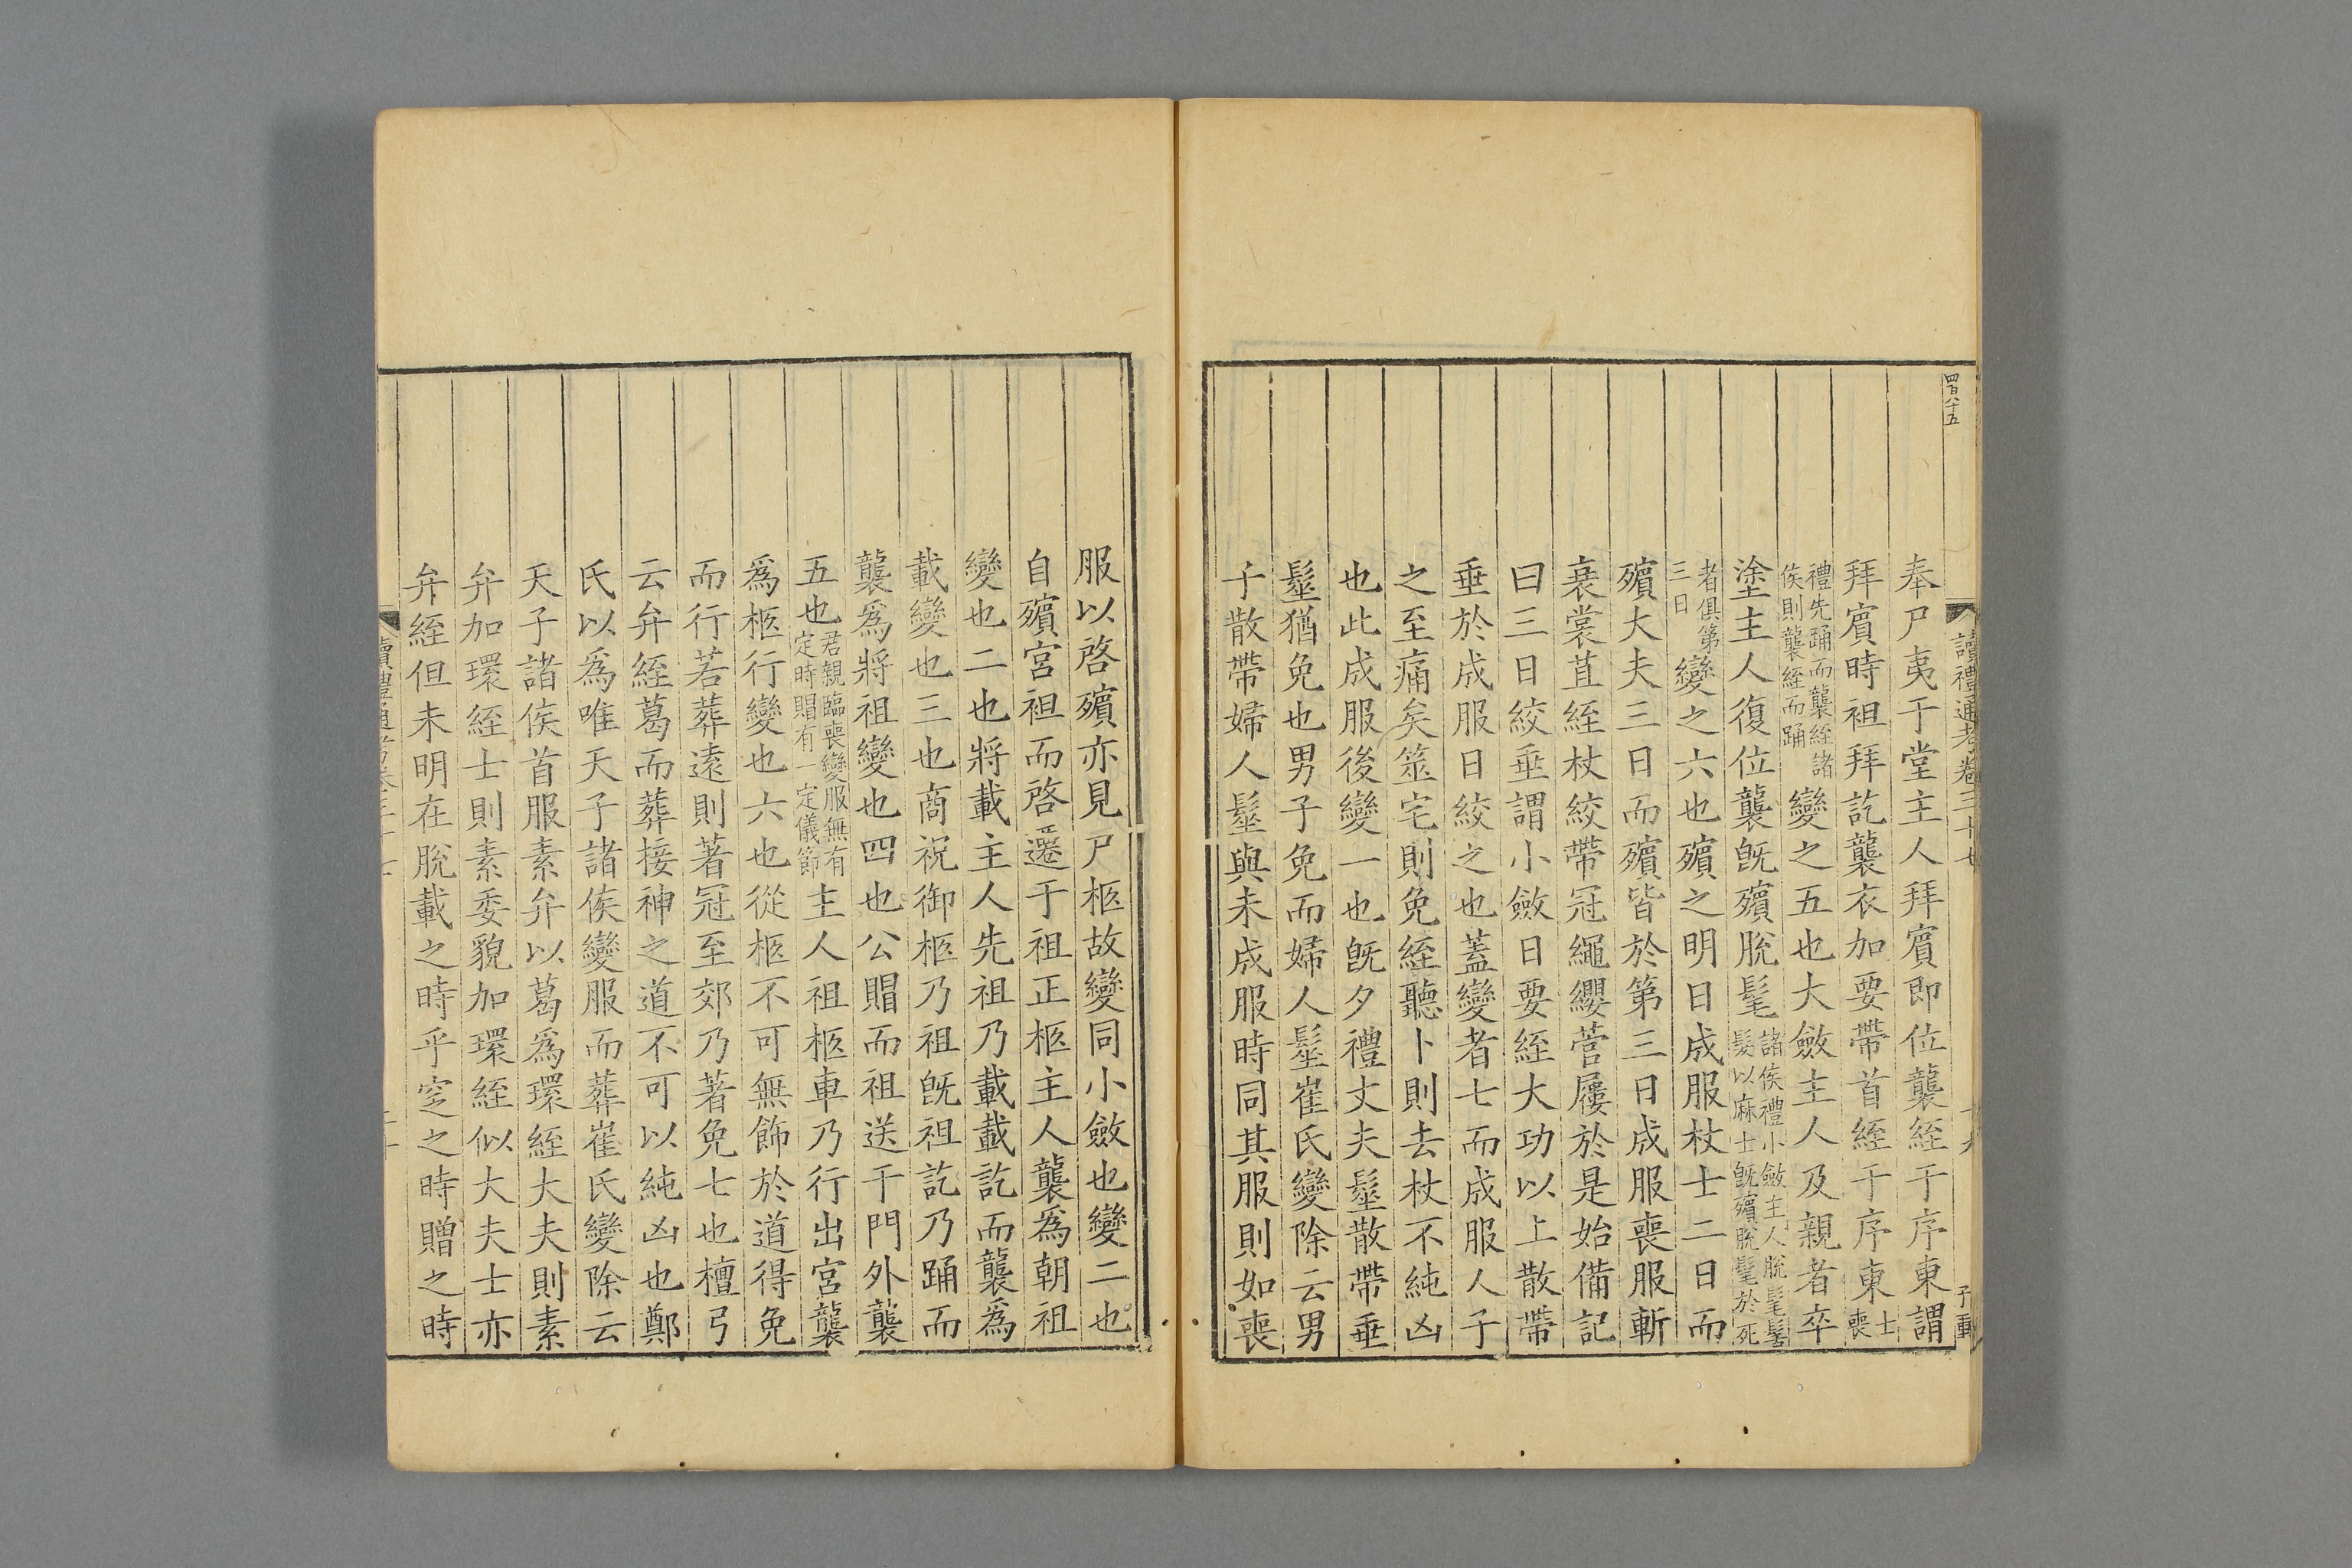 四百八十五
讀禮通考卷三十
奉尸夷于堂主人拜賓即位襲絰于序東謂
拜賓時袒拜訖襲衣加要帶首絰于序東士喪
禮先踊而襲絰諸侯則襲絰而踊變之五也大斂主人及親者卒
塗主人復位襲旣殯脫髦諸侯禮小斂主人脫髦髻髮以麻士旣殯脫髦於死
者俱第三日變之六也殯之明日成服杖士二日而
殯大夫三日而殯皆於第三日成服喪服斬
衰裳苴絰杖絞帶冠繩纓菅屨於是始備記
曰三日絞垂謂小斂日要絰大功以上散帶
垂於成服日絞之也蓋變者七而成服人子
之至痛矣筮宅則免絰聽卜則去杖不純凶
也此成服後變一也旣夕禮丈夫髽散帶垂
髽猶免也男子免而婦人髽崔氏變除云男
子散帶婦人髽與未成服時同其服則如喪
服以啓殯亦見尸柩故變同小斂也變二也
自殯宮袒而啓遷于祖正柩主人襲爲朝祖
變也二也將載主人先袒乃載載訖而襲爲
載變也三也商祝御柩乃祖旣祖訖乃踊而
襲爲將祖變也四也公賵而袒送于門外襲
五也君親臨喪變服無有定時賵有一定儀節主人袒柩車乃行出宮襲
爲柩行變也六也從柩不可無飾於道得免
而行若葬遠則著冠至郊乃著免七也檀弓
云弁絰葛而葬接神之道不可以純凶也鄭
氏以爲唯天子諸侯變服而葬崔氏變除云
天子諸侯首服素弁以葛爲環絰大夫則素
弁加環絰士則素委貌加環絰似大夫士亦
弁絰但未明在脫載之時乎窆之時贈之時